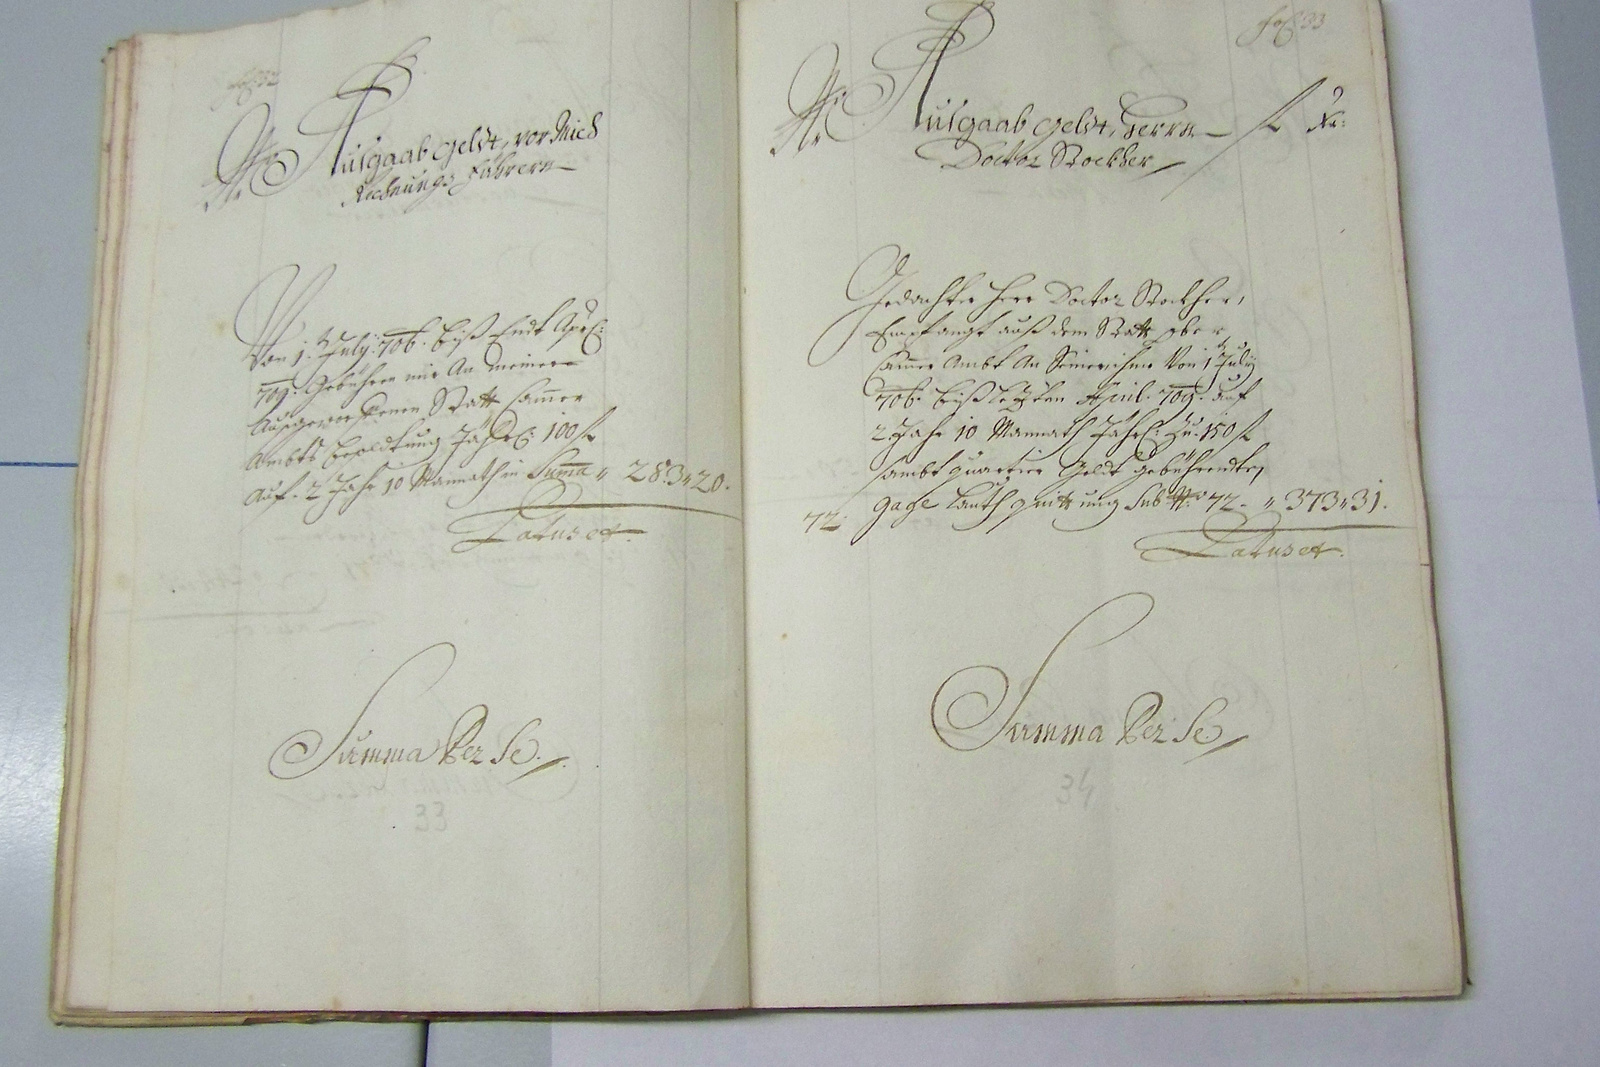 fol: 32
Nro
Ausgaab Geldt, vor Mich
Rechnungs Führern
Von 1. July 706. biß Endt Aprl:
709. Gebühren mir An meiner
Ausgeworffenen Statt Camer
Ambts besoldtung Jährl: 100 fl
Auf. 2 Jahr 10 Monnath in Suma " 283 " 20.
Latus et
Summa Per Se.
33
fol: 33
Nro
Ausgaab Geldt, Herrn fl kr:
Doctor Stockher
Gedachter Herr Doctor Stockher,
Empfangt auß dem Statt ober
Camer Ambt An Seiner ihme Von 1 July
706. biß letzten April. 709. auf
2 Jahr 10 Monnath Jährl: zu 150 fl
sambt quartier Geldt gebührendten
72. gage lauth quittung sub No 72. " 373 " 31.
Latus et
Summa Per Se.
34